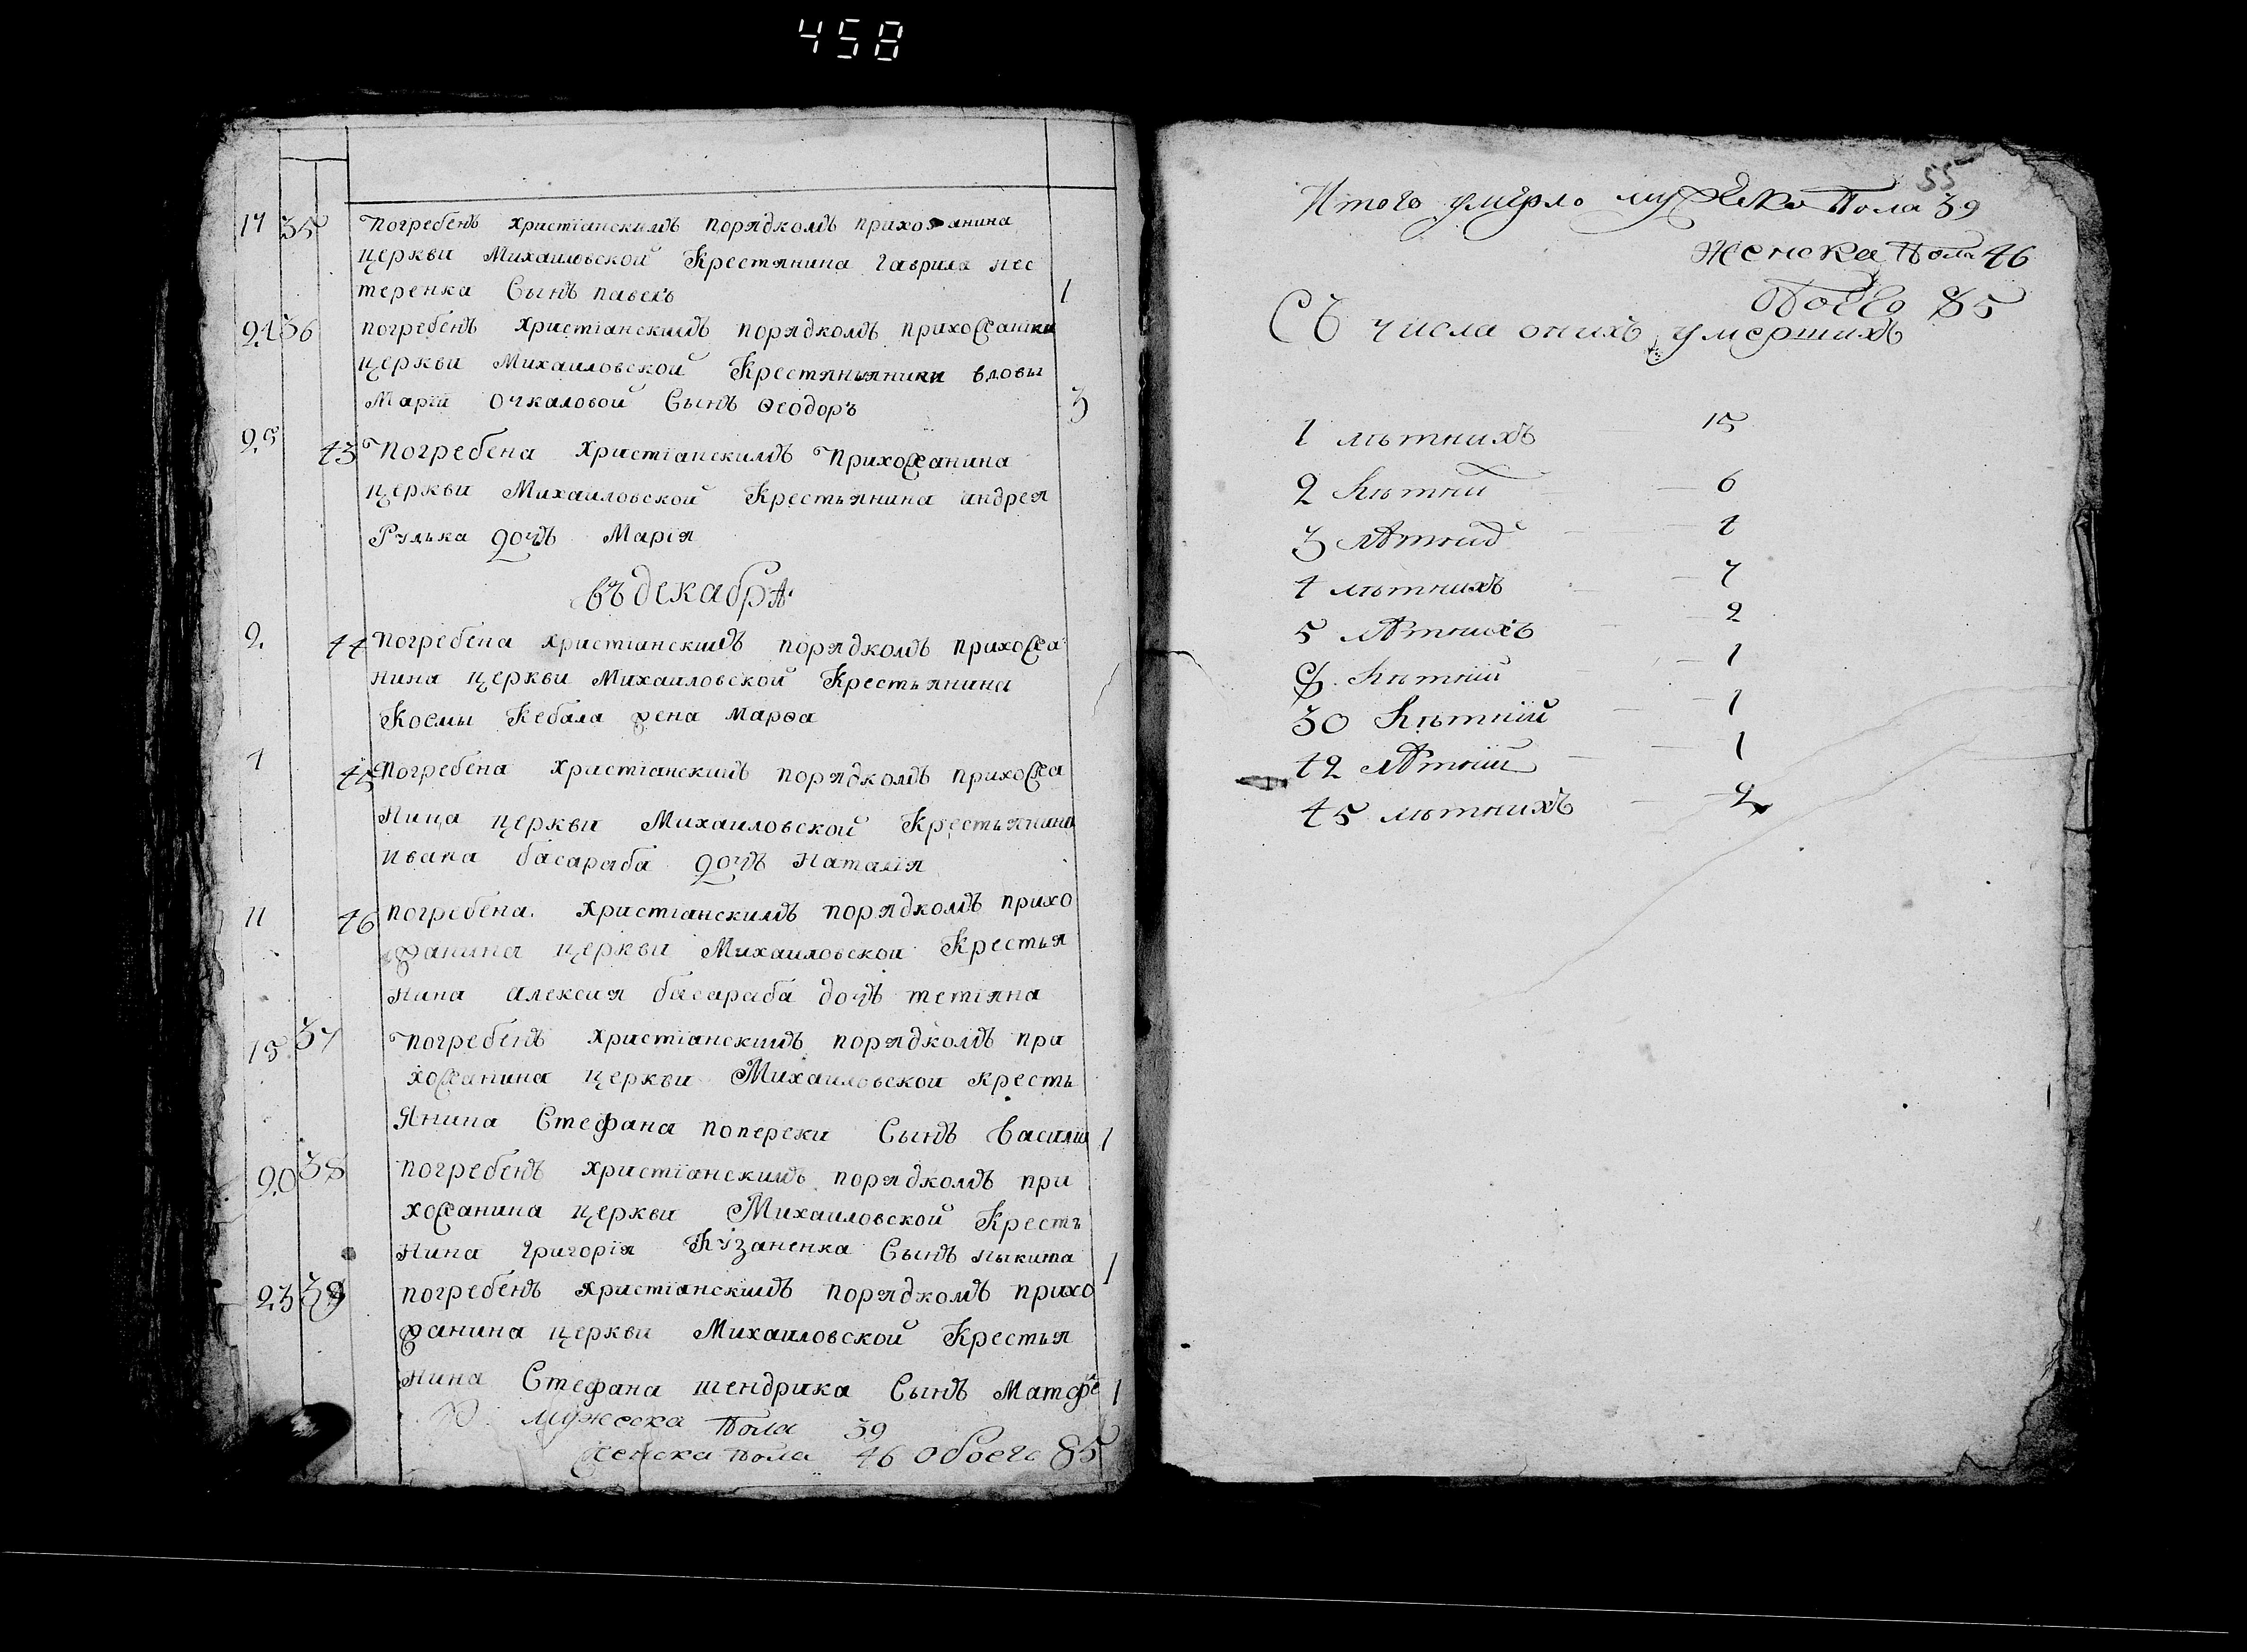 458
17 35 погребенъ христіанскимъ порядкомъ прихожанина
церкви Михаиловской Крестянина Гаврила Нес
теренка Сынъ павелъ 1
24 36 погребенъ христіанскимъ порядкомъ прихожанки
церкви Михаиловской Крестяныники вдовы
Маріи Очкаловой Сынъ Ѳеодоръ 3
25 43 Погребена христіанскимъ Прихожанина
церкви Михаиловской Крестьянина андрея
Рулька дочъ Марія
въ декабрѣ
2 44 погребена христіанскимъ порядкомъ прихожа
нина церкви Михаиловской Крестьянина
Космы Кебала жена Марѳа
4 45 Погребена христіанскимъ порядкомъ прихожа
нина церкви Михаиловской Крестьянина
ивана басараба дочъ Наталія
11 46 погребена христіанскимъ порядкомъ прихо
жанина церкви Михаиловской Крестья
нина алексия басараба дочъ тетіяна
15 37 погребенъ христіанскимъ порядкомъ при
хожанина церкви Михаиловской кресть
янина Стефана попереки Сынъ Василій 1
20 38 погребенъ христіанскимъ порядкомъ при
хожанина церкви Михаиловской Кресть
нина григорія Кузаненка Сынъ Ныкита 1
23 39 погребенъ христіанскимъ порядкомъ прихо
жанина церкви Михаиловской Крестья
нина Стефана шендрика Сынъ Матфе 1
мужеска Пола 39
женска пола 46 обоего 85
55
Итого умерло мужеска Пола 39
женска пола 46
Обоего 85
Съ числа онихъ умершихъ
1 лѣтнихъ 15
2 лѣтній 6
3 лѣтній 1
4 лѣтнихъ 7
5 лѣтнихъ 2
лѣтній 1
30 лѣтній 1
42 лѣтній 1
45 лѣтнихъ 2